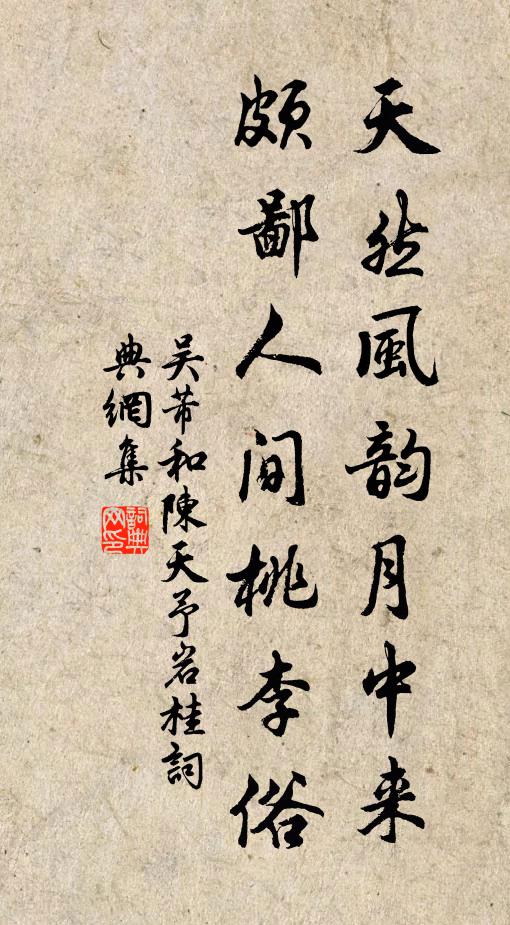 天然風韵月中来
頗鄙人间桃李俗
吴芾和陳天予岩桂詞
典網集
詞典网印